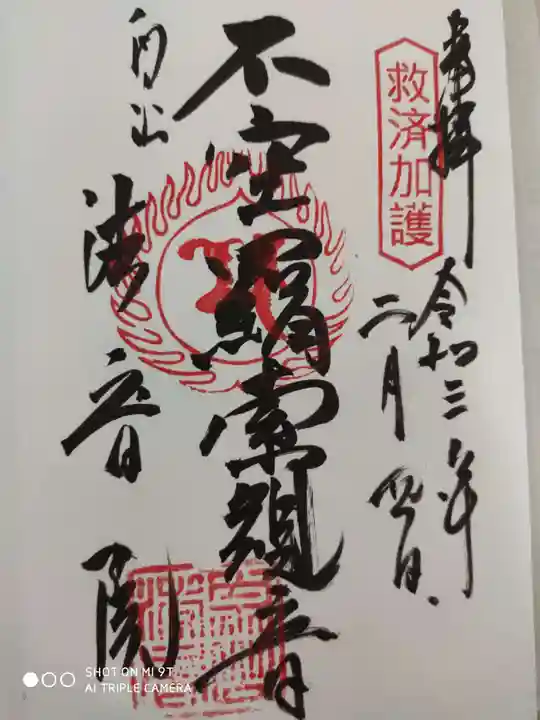 奉拝
救済加護
令和三年
二月四日
不空羂索観音
内山
観音院
SHOT ON MI 9T
AI TRIPLE CAMERA